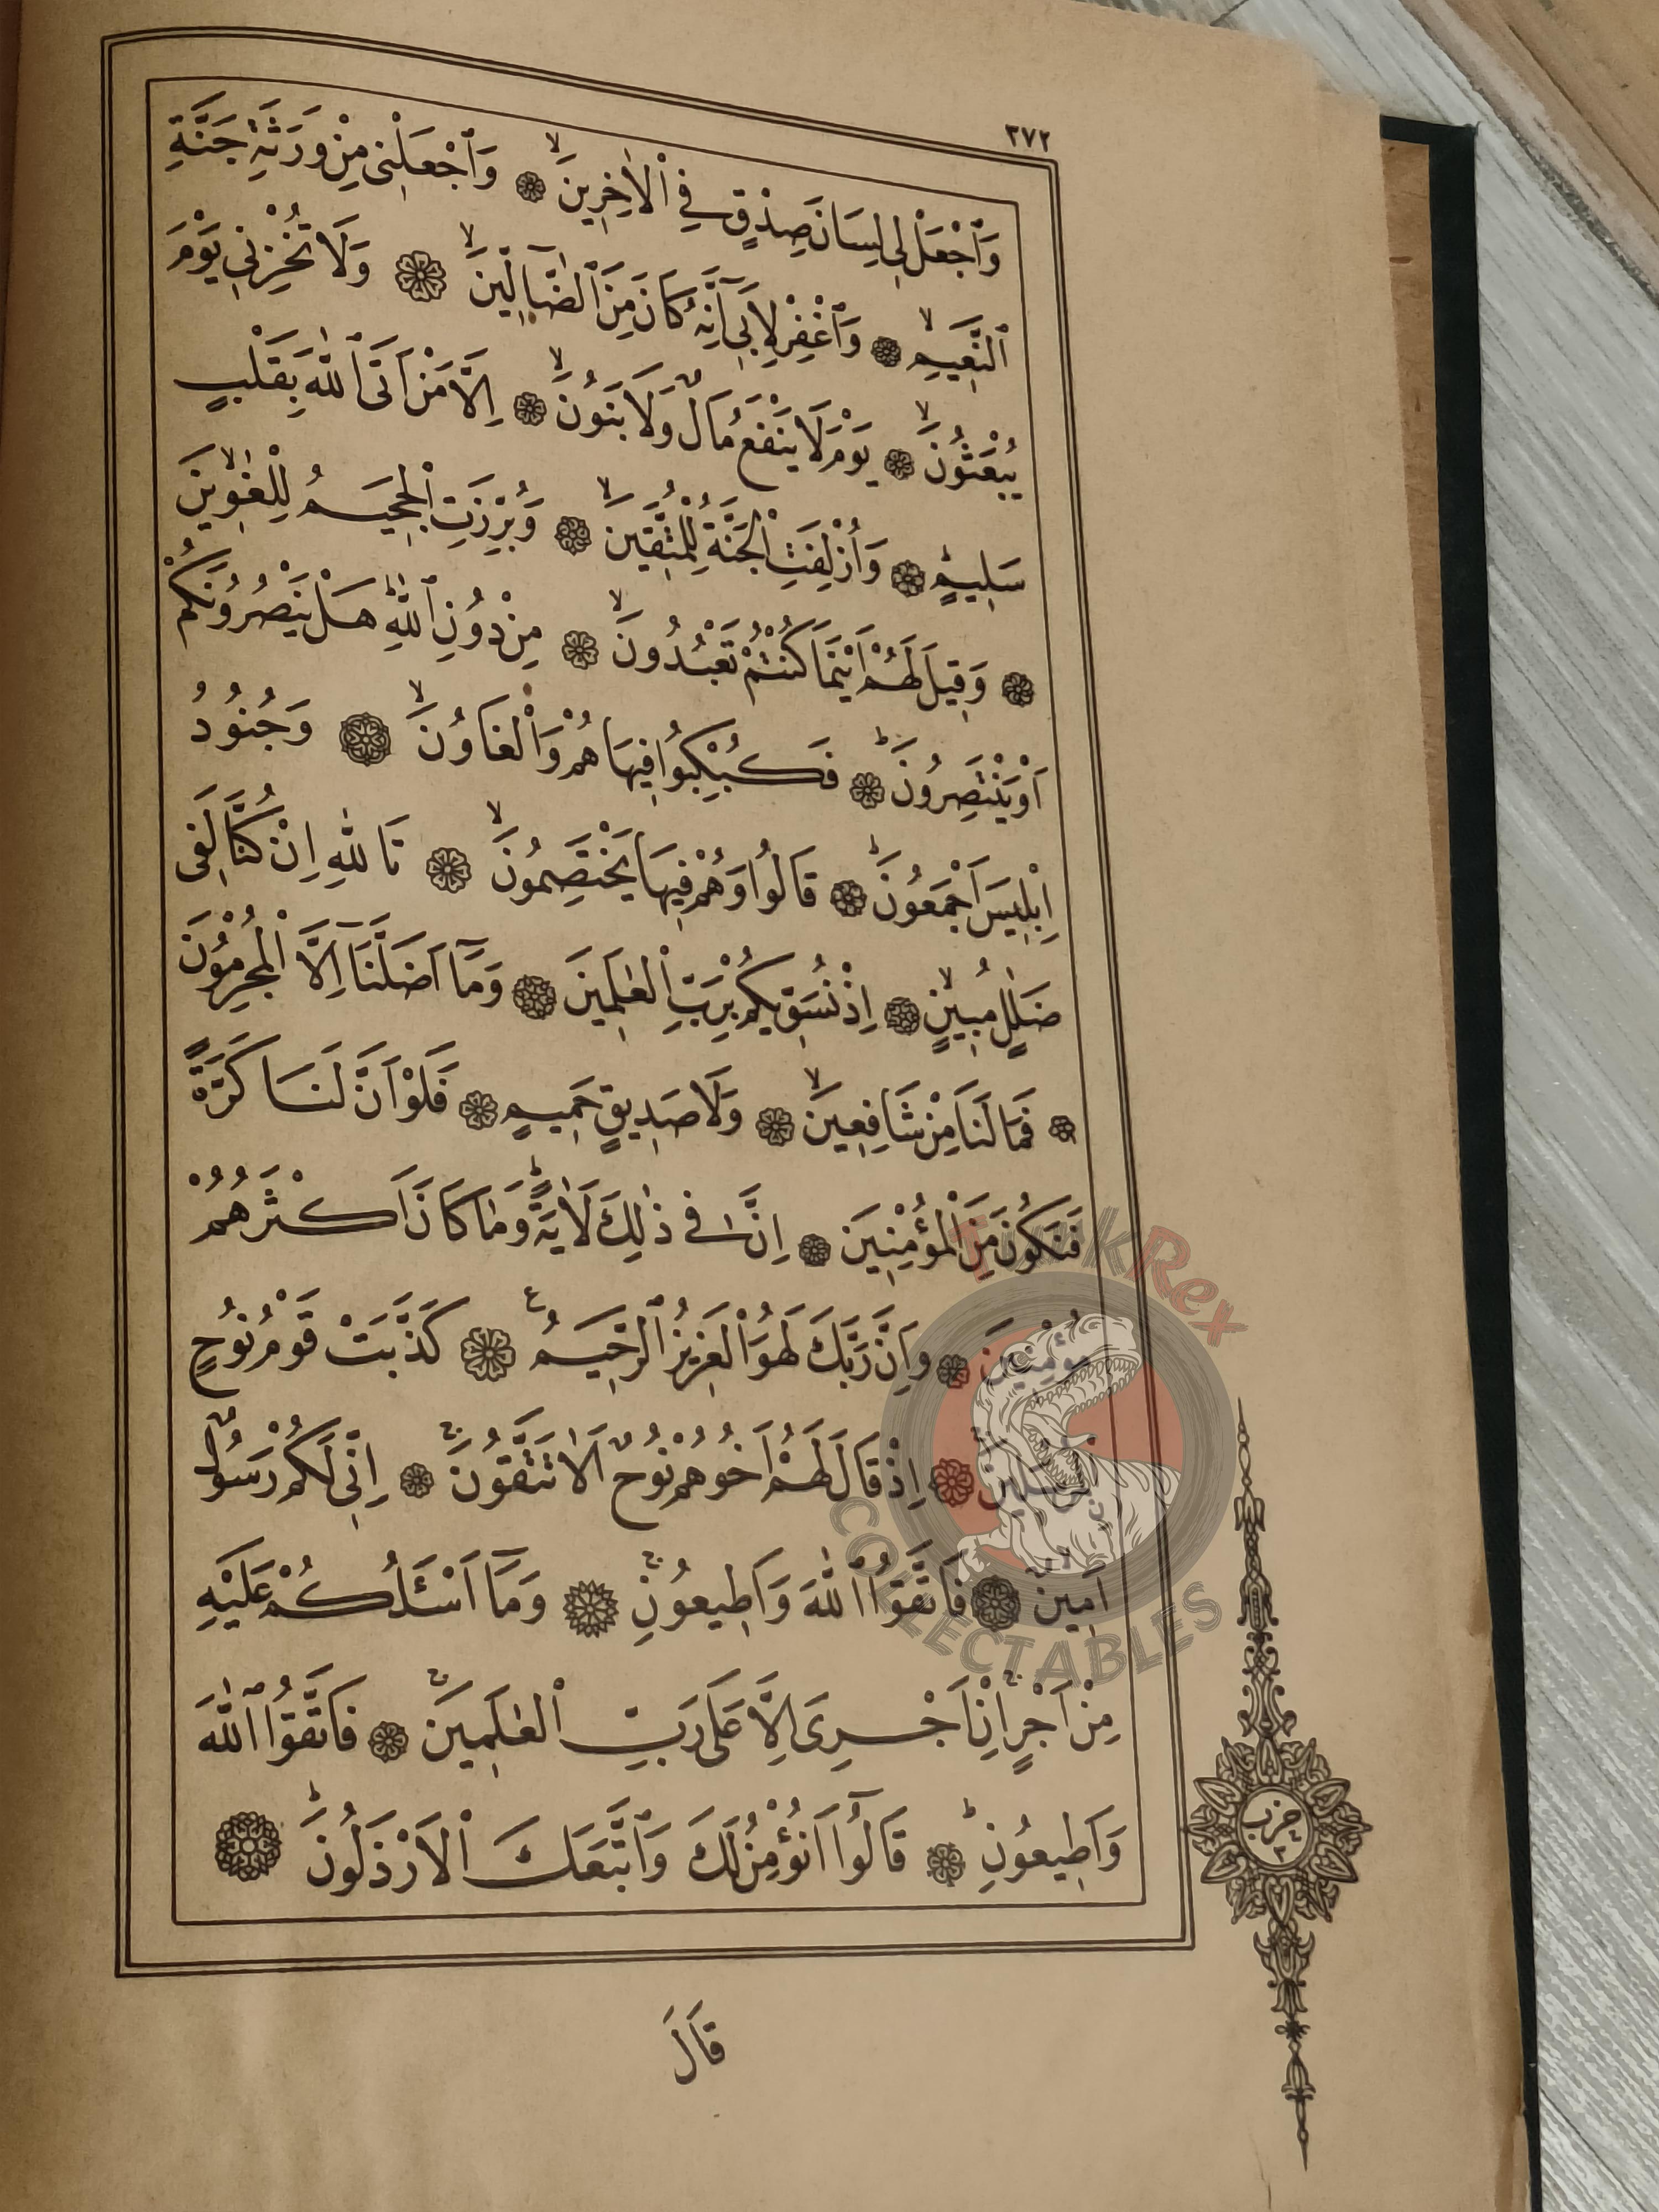 ٣٧٢
وَٱجْعَلْ لِى لِسَانَ صِدْقٍ فِى ٱلْاٰخِرِينَۙ وَٱجْعَلْنِى مِنْ وَرَثَةِ جَنَّةِ
ٱلنَّعِيمِۙ وَٱغْفِرْ لِاَبِىٓ اِنَّهُ كَانَ مِنَ ٱلضَّٓالِّينَۙ وَلَا تُخْزِنِى يَوْمَ
يُبْعَثُونَۙ يَوْمَ لَا يَنْفَعُ مَالٌ وَلَا بَنُونَۙ اِلَّا مَنْ اَتَى ٱللّٰهَ بِقَلْبٍ
سَلِيمٍؕ وَاُزْلِفَتِ ٱلْجَنَّةُ لِلْمُتَّقِينَۙ وَبُرِّزَتِ ٱلْجَحِيمُ لِلْغَاوِينَۙ
وَقِيلَ لَهُمْ اَيْنَمَا كُنْتُمْ تَعْبُدُونَۙ مِنْ دُونِ ٱللّٰهِؕ هَلْ يَنْصُرُونَكُمْ
اَوْ يَنْتَصِرُونَؕ فَكُبْكِبُوا فِيهَا هُمْ وَٱلْغَاوُنَۙ وَجُنُودُ
اِبْلِيسَ اَجْمَعُونَؕ قَالُوا وَهُمْ فِيهَا يَخْتَصِمُونَۙ تَاللّٰهِ اِنْ كُنَّا لَفِى
ضَلَالٍ مُبِينٍۙ اِذْ نُسَوِّيكُمْ بِرَبِّ ٱلْعٰلَمِينَ وَمَٓا اَضَلَّنَٓا اِلَّا ٱلْمُجْرِمُونَ
فَمَا لَنَا مِنْ شَافِعِينَۙ وَلَا صَدِيقٍ حَمِيمٍ فَلَوْ اَنَّ لَنَا كَرَّةً
فَنَكُونَ مِنَ ٱلْمُؤْمِنِينَ اِنَّ فِى ذٰلِكَ لَاٰيَةًؕ وَمَا كَانَ اَكْثَرُهُمْ
مُؤْمِنِينَ وَاِنَّ رَبَّكَ لَهُوَ ٱلْعَزِيزُ ٱلرَّحِيمُ ع كَذَّبَتْ قَوْمُ نُوحٍ
اِذْ قَالَ لَهُمْ اَخُوهُمْ نُوحٌ اَلَا تَتَّقُونَۚ اِنِّى لَكُمْ رَسُولٌ
اَمِينٌۙ فَاتَّقُوا ٱللّٰهَ وَاَطِيعُونِۚ وَمَٓا اَسْـَٔلُكُمْ عَلَيْهِ
مِنْ اَجْرٍۚ اِنْ اَجْرِىَ اِلَّا عَلٰى رَبِّ ٱلْعٰلَمِينَۚ فَاتَّقُوا ٱللّٰهَ
وَاَطِيعُونِؕ قَالُٓوا اَنُؤْمِنُ لَكَ وَٱتَّبَعَكَ ٱلْاَرْذَلُونَؕ
حزب
٣
قَالَ
Rex
COLLECTABLES